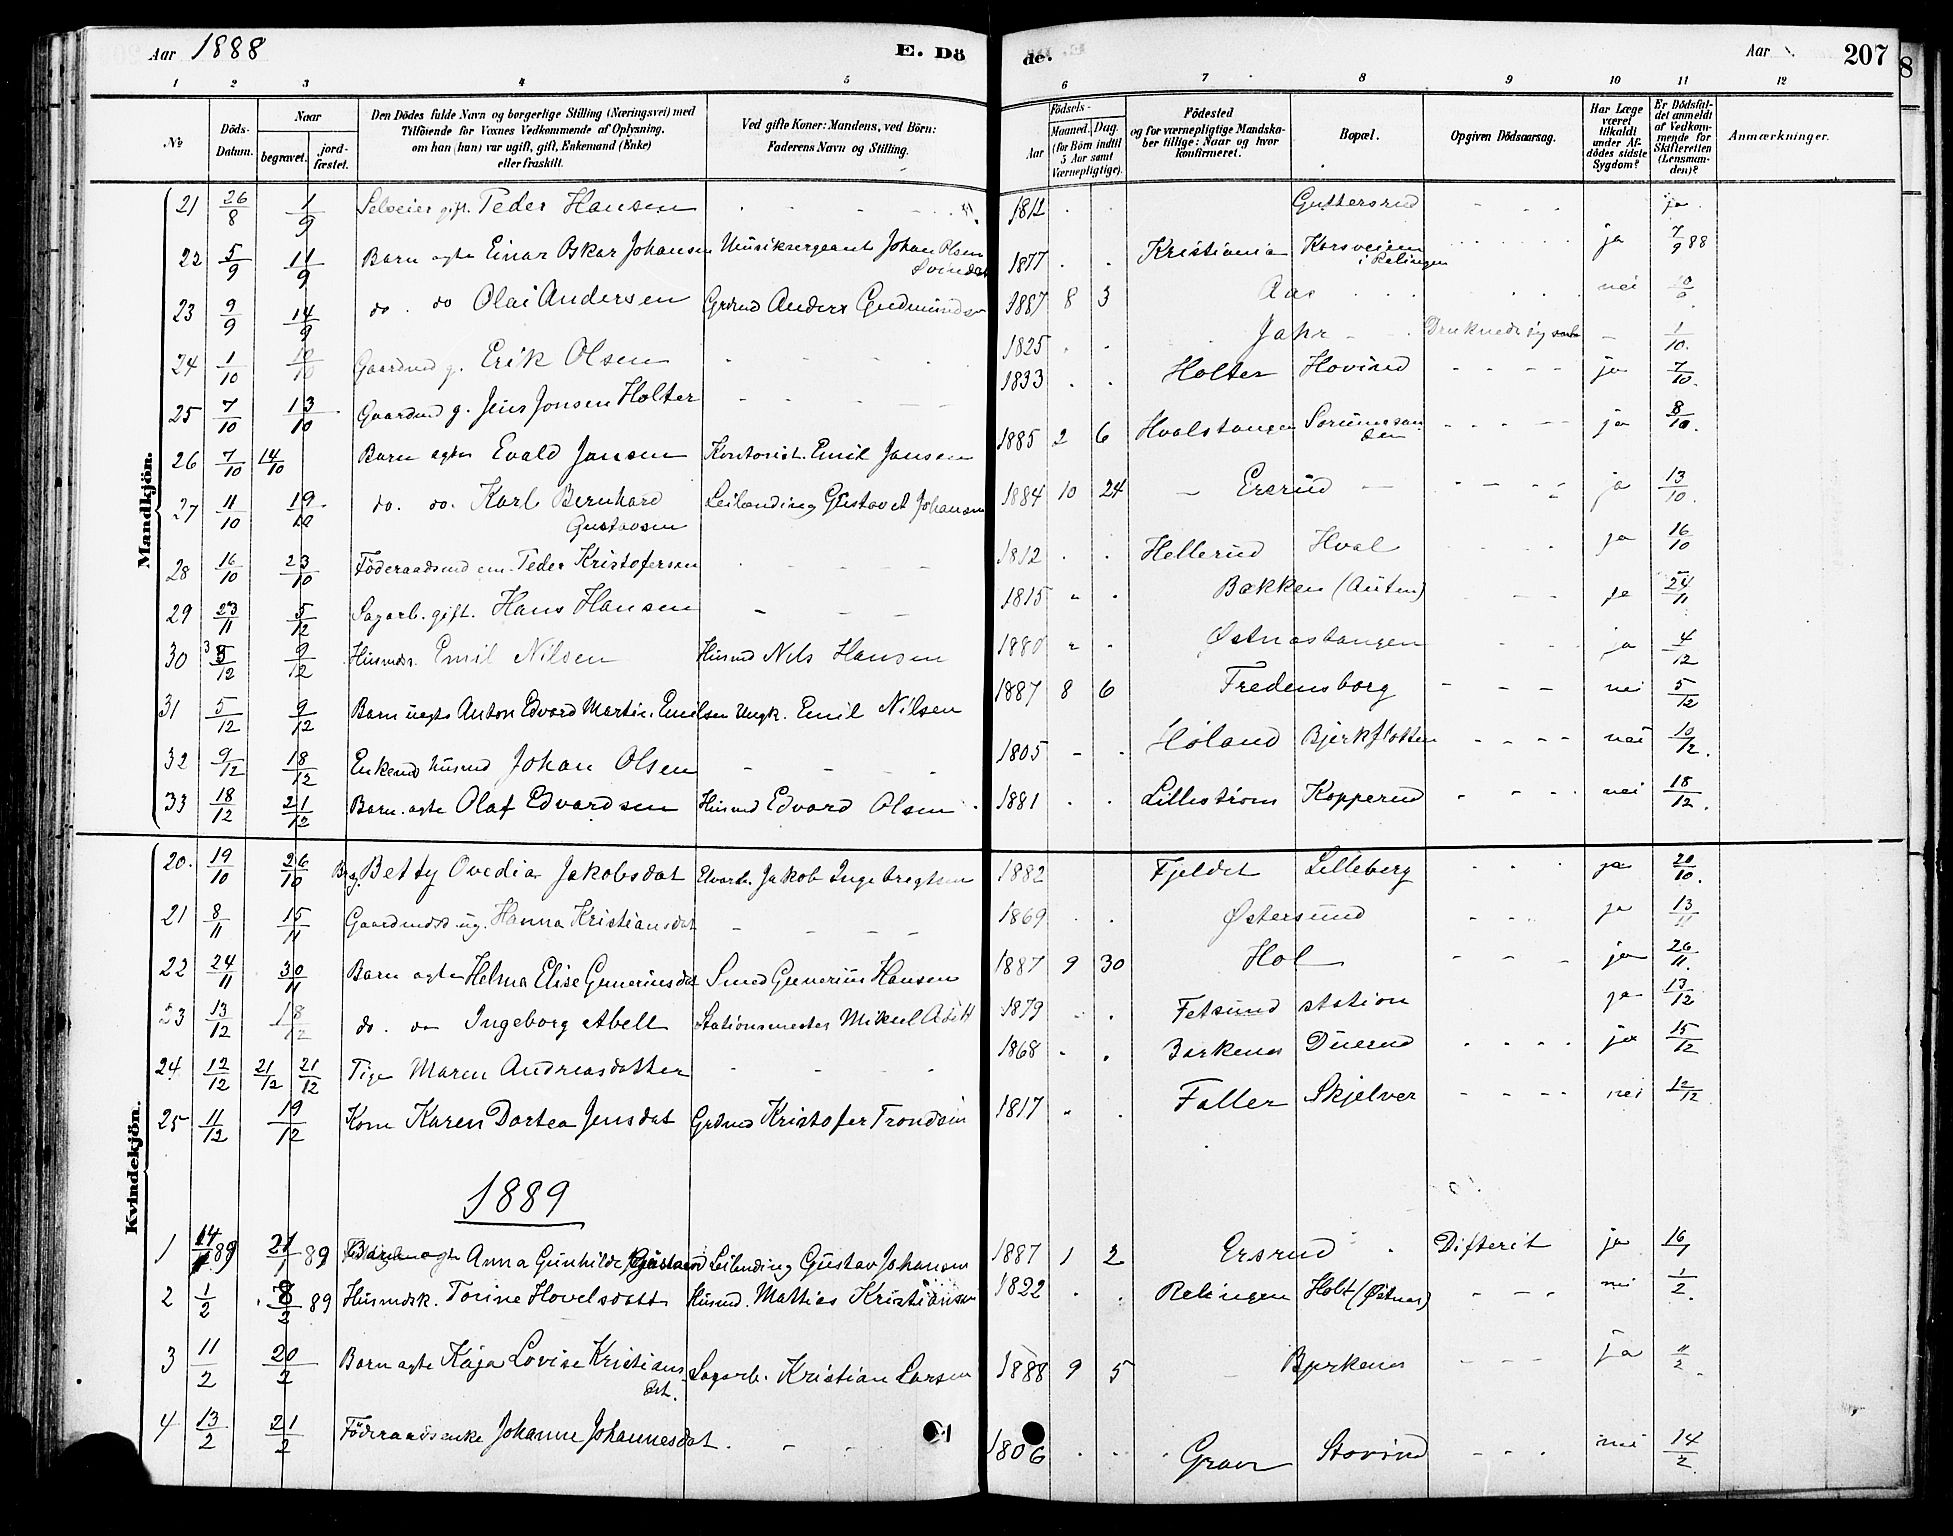 Aar 1888
E. Dö
de.
Aar
207
1 2 3 4 5 6 7 8 9 10 11 12
No
Döds-Datum.
Naar
begravet.
jordfæstet.
Den Dödes fulde Navn og borgerlige Stilling (Næringsvei) med
Tilföiende for Voxnes Vedkommende af Oplysning,
om han (hun) var ugift, gift, Enkemand (Enke)
eller fraskilt.
Ved gifte Koner: Mandens, ved Börn:
Faderens Navn og Stilling.
Födsels-
Aar
Maaned. Dag.
(for Börn indtil
5 Aar samt
Værnepligtige).
Födested
og for værnepligtige Mandska-
ber tillige: Naar og hvor
konfirmeret.
Bopæl.
Opgiven Dödsaarsag.
Har Læge
været
tilkaldt
under Af-
dödes sidste
Sygdom?
Er Dödsfal-
det anmeldt
af Vedkom-
mende for
Skifteretten
(Lensman-
den)?
Anmærkninger.
Mandkjön.
21 26/8 1/9 Selveier gift. Peder Hansen 1812 Guttersrud ja
22 5/9 11/9 Barn ægte Einar Oskar Johansen Musiksergeant Johan Olsen 1877 Kristiania Korsveien i Relingen ja 7/9 88
23 9/9 14/9 do. do Olai Andersen Grdmd Anders Gudmundsen 1887 8 3 Aas nei
24 1/10 10/10 Gaardmd g. Erik Olsen 1825 Jahr Druknede sig 1/10.
25 7/10 13/10 Gaardmd g. Jens Jonsen Holter 1833 Holter Hovind ja 7/10.
26 7/10 14/10 Barn ægte Evald Jansen Kontorist. Emil Jansen 1885 2 6 Hvalstangen ja 8/10.
27 11/10 19/10 do. do. Karl Bernhard Gustavsen Leilænding Gustav Johansen 1884 10 24 Ersrud ja 13/10.
28 16/10 23/10 Föderaadsmd em. Peder Kristofersen 1812 Hellerud Hval ja 16/10
29 23/11 5/12 Sagarb. gift. Hans Hansen 1815 Bakken (Auten) ja 24/11
30 3/12 9/12 Husmds. Emil Nilsen Husmd Nils Hansen 1880 Østnæstangen ja 4/12
31 5/12 9/12 Barn uægte Anton Edvard Martin Emilsen Ungk. Emil Nilsen 1887 8 6 Fredensborg nei 5/12
32 9/12 18/12 Enkemd husmd Johan Olsen 1805 Høland Bjerkflotten nei 10/12.
33 18/12 21/12 Barn ægte Olaf Edvardsen Husmd Edvard Olsen 1881 Lillestrøm Kopperud nei 18/12.
Kvindekjön.
20. 19/10 26/10 Betty Ovedia Jakobsdat Elvarb. Jakob Ingebregtsen 1882 Fjeldet Lilleberg ja 20/10.
21 8/11 15/11 Gaardmdsd ug. Hanna Kristiansdat 1869 Østersund ja 13/11
22 24/11 30/11 Barn ægte Helma Elise Gunneriusdat Smed Gunerius Hansen 1887 9 30 Hol ja 26/11.
23 13/12 18/12 do. do Ingeborg Abell Stationsmester Mikael Abell 1879 Fetsund station ja 13/12
24 12/12 21/12 21/12 Pige Maren Andreasdatter 1868 Duerud ja 15/12
25 11/12 19/12 Kone Karen Dortea Jensdat Grdmd Kristofer Trondsen 1817 Faller Skjelver nei 12/12
1889
1 14/1 89 21/1 89 Barn ægte Anna Gunhilde Gustavsd Leilænding Gustav Johansen 1887 1 2 Ersrud Difterit ja 16/1
2 1/2 8/2 89 Husmdsk. Torine Hovelsdatt Husmd. Mattias Kristiansen 1822 Relingen Holt (Østnæs) nei 1/2.
3 11/2 20/2 Barn ægte Kaja Lovise Kristiansdat. Sagarb. Kristian Larsen 1888 9 5 Bjerkenes ja 11/2.
4 13/2 21/2 Föderaadsenke Johanne Johannesdat. 1806 Graver Stovind nei 14/2.